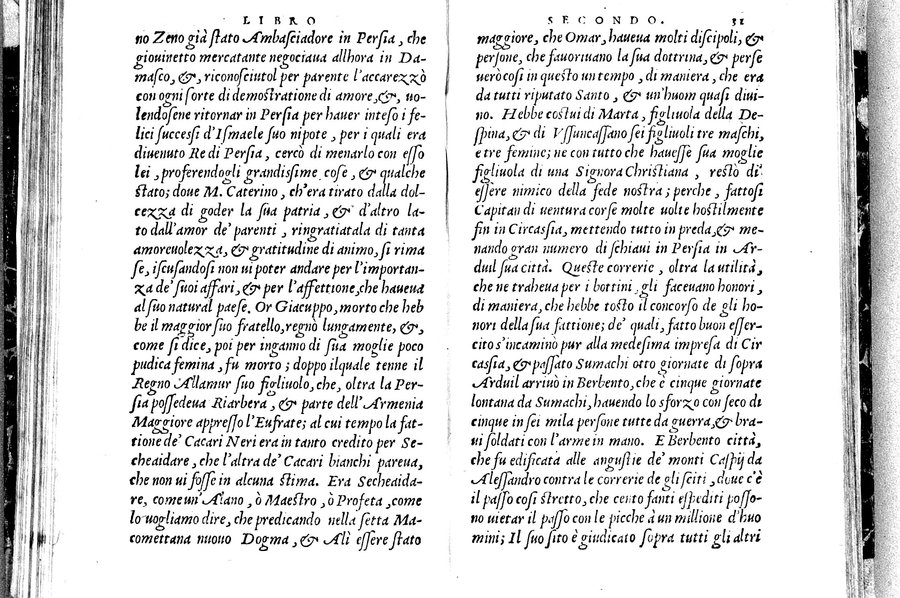 LIBRO
no Zeno già ſtato Ambaſciadore in Perſia, che
giouinetto mercatante negociaua allhora in Da-
maſco, &, riconoſciutol per parente l'accarezzò
con ogni ſorte di demoſtratione di amore, &, uo-
lendoſene ritornar in Perſia per hauer inteſo i fe-
lici ſucceſſi d'Iſmaele ſuo nipote, per i quali era
diuenuto Re di Perſia, cercò di menarlo con eſſo
lei, proferendogli grandiſsime coſe, & qualche
ſtato; doue M. Caterino, ch'era tirato dalla dol-
cezza di goder la ſua patria, & d'altro la-
to dall'amor de' parenti, ringratiatala di tanta
amoreuolezza, & gratitudine di animo, ſi rima
ſe, iſcuſandoſi non ui poter andare per l'importan-
za de' ſuoi affari, & per l'affettione, che haueua
al ſuo natural paeſe. Or Giacuppo, morto che heb
be il maggior ſuo fratello, regnò lungamente, &,
come ſi dice, poi per inganno di ſua moglie poco
pudica femina, fu morto; doppo ilquale tenne il
Regno Allamur ſuo figliuolo, che, oltra la Per-
ſia poſſedeua Riarbera, & parte dell'Armenia
Maggiore appreſſo l'Eufrate; al cui tempo la fat-
tione de' Cacari Neri era in tanto credito per Se-
cheaidare, che l'altra de' Cacari bianchi pareua,
che non ui foſſe in alcuna ſtima. Era Secheaida-
re, come un' Alano, ò Maeſtro, ò Profeta, come
lo uogliamo dire, che predicando nella ſetta Ma-
comettana nuouo Dogma, & Alì eſſere ſtato
SECONDO. 31
maggiore, che Omar, haueua molti diſcipoli, &
perſone, che fauoriuano la ſua dottrina, & perſe
uerò coſi in queſto un tempo, di maniera, che era
da tutti riputato Santo, & un'huom quaſi diui-
no. Hebbe coſtui di Marta, figliuola della De-
ſpina, & di Vſſuncaſſano ſei figliuoli tre maſchi,
e tre femine; ne con tutto che haueſſe ſua moglie
figliuola di una Signora Chriſtiana, reſtò di
eſſere nimico della fede noſtra; perche, fattoſi
Capitan di uentura corſe molte uolte hoſtilmente
fin in Circaſſia, mettendo tutto in preda, & me-
nando gran numero di ſchiaui in Perſia in Ar-
duil ſua città. Queſte correrie, oltra la utilità,
che ne traheua per i bottini, gli faceuano honori,
di maniera, che hebbe toſto il concorſo de gli ho-
nori della ſua fattione; de' quali, fatto buon eſſer-
cito s'incaminò pur alla medeſima impreſa di Cir
caſſia, & paſſato Sumachi otto giornate di ſopra
Arduil arriuò in Berbento, che è cinque giornate
lontana da Sumachi, hauendo lo sforzo con ſeco di
cinque in ſei mila perſone tutte da guerra, & bra-
ui ſoldati con l'arme in mano. E Berbento città,
che fu edificata alle anguſtie de' monti Caſpij da
Aleſſandro contra le correrie de gli ſciti, doue c'è
il paſſo coſi ſtretto, che cento fanti eſpediti poſſo-
no uietar il paſſo con le picche à un millione d'huo
mini; Il ſuo ſito è giudicato ſopra tutti gli altri